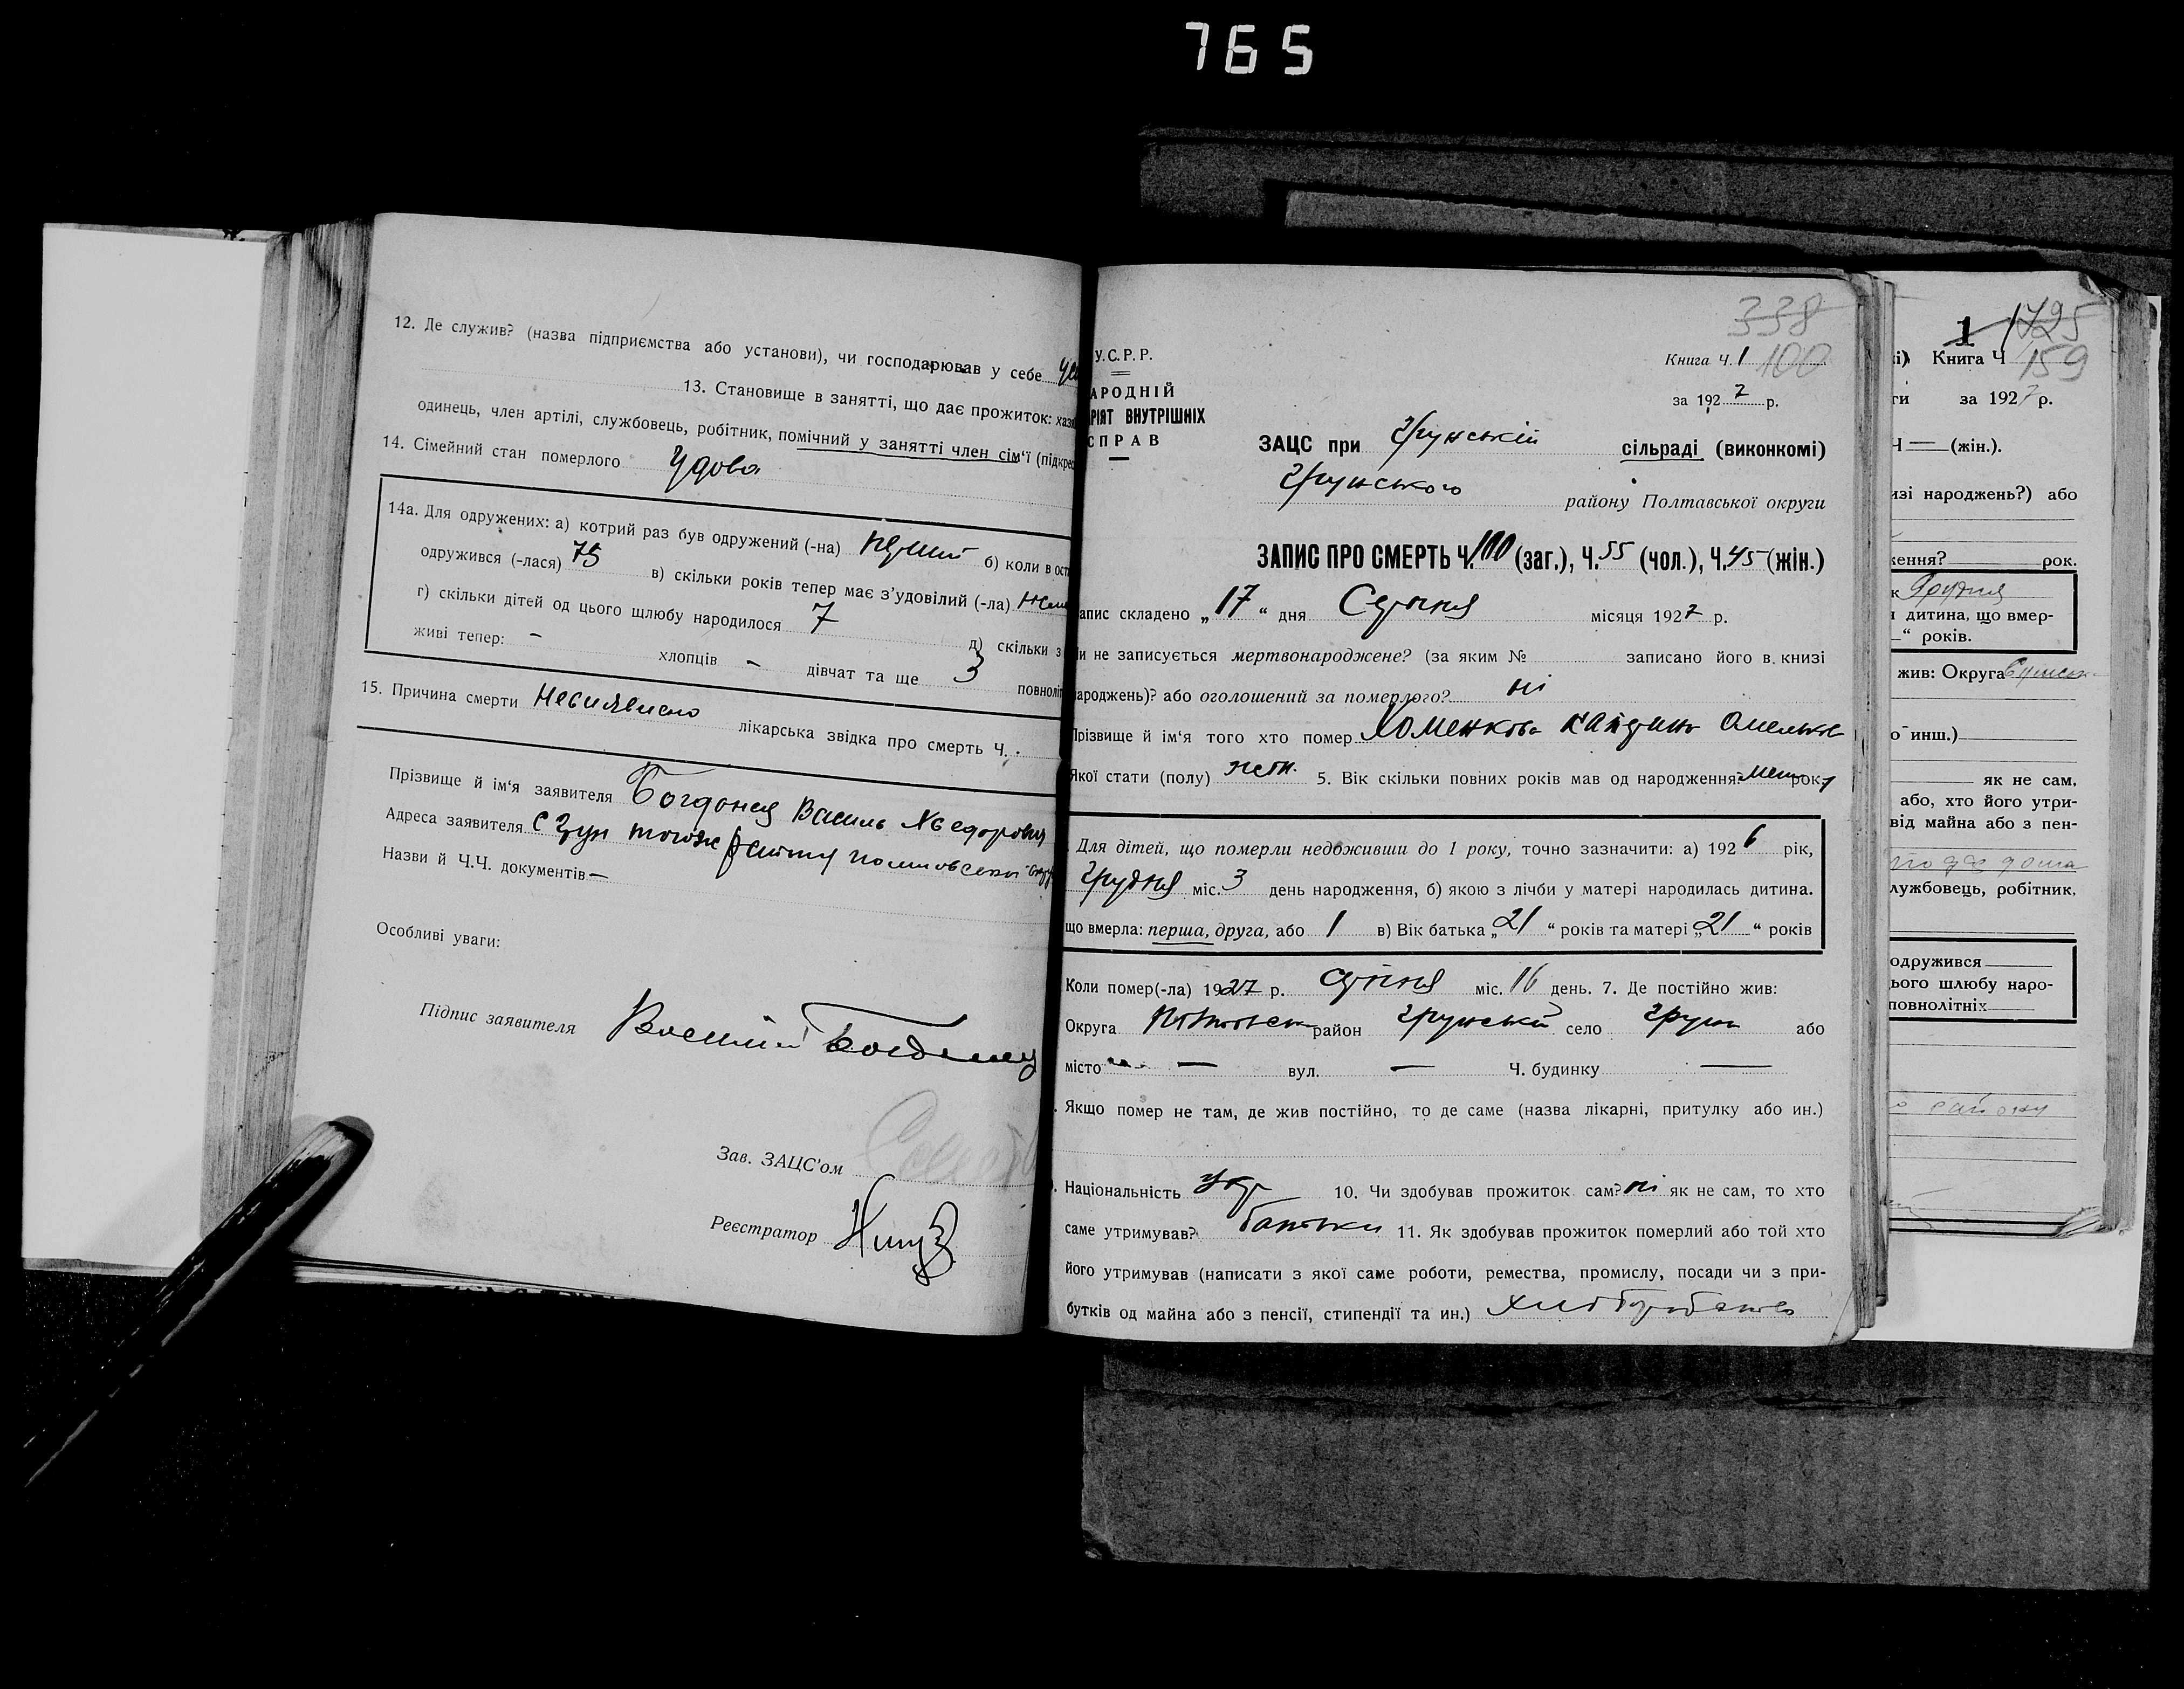 765
12. Де служив? (назва підприємства або установи), чи господарював у себе
13. Становище в занятті, що дає прожиток:
одинець, член артілі, службовець, робітник, помічний у занятті член сім'ї
14. Сімейний стан померлого Удова
14а. Для одружених: а) котрий раз був одружений (-на) б) коли в
одружився (-лася) 75 в) скільки років тепер має з'удовілий (-ла)
г) скільки дітей од цього шлюбу народилося 7 д) скільки з
живі тепер: - хлопців - дівчат та ще 3
15. Причина смерти лікарська звідка про смерть Ч.
Прізвище й ім'я заявителя Богдонец Василь
Адреса заявителя с
Назви й Ч.Ч. документів —
Особливі уваги:
Підпис заявителя
Зав. ЗАЦС'ом
Реєстратор
У.С.Р.Р.
АРОДНІЙ
РІЯТ ВНУТРІШНІХ
СПРАВ
338
Книга Ч. 1 100
за 1927 р.
ЗАЦС при Грунській сільраді (виконкомі)
Грунського району Полтавської округи
ЗАПИС ПРО СМЕРТЬ Ч. 100 (заг.), Ч. 55 (чол.), Ч. 45 (жін.)
апис складено „17“ дня Січня місяця 1927 р.
и не записується мертвонароджене? (за яким № записано його в книзі
ароджень)? або оголошений за померлого? ні
Прізвище й ім'я того хто помер Хоменкова
Якої стати (полу) жін. 5. Вік скільки повних років мав од народження: рок
Для дітей, що померли недоживши до 1 року, точно зазначити: а) 1926 рік,
Грудня міс. 3 день народження, б) якою з лічби у матері народилась дитина.
що вмерла: перша, друга, або 1 в) Вік батька „21“ років та матері „21“ років
Коли помер(-ла) 1927 р. січня міс. 16 день. 7. Де постійно жив:
Округа район Грунський село Грунь або
місто — вул. — Ч. будинку —
. Якщо помер не там, де жив постійно, то де саме (назва лікарні, притулку або ин.)
. Національність Укр 10. Чи здобував прожиток сам? ні як не сам, то хто
саме утримував? батьки 11. Як здобував прожиток померлий або той хто
його утримував (написати з якої саме роботи, ремества, промислу, посади чи з при-
бутків од майна або з пенсії, стипендії та ин.)
1 1425
Книга Ч 159
за 1927 р.
Ч — (жін.).
изі народжень?) або
ження? рок.
Грудня
дитина, що вмер-
— “ років.
жив: Округа
о инш.)
як не сам,
або, хто його утри-
від майна або з пен-
лужбовець, робітник,
одружився
ього шлюбу наро-
повнолітніх